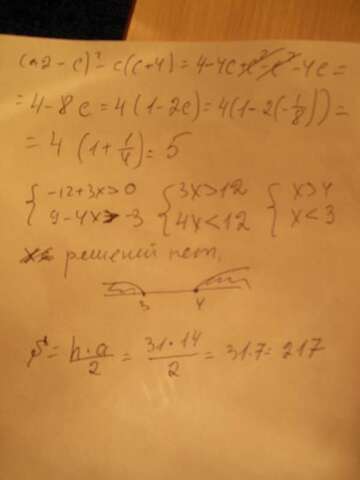 (2-c)²-c(c+4)=4-4c+c²-c²-4c=
=4-8c=4(1-2c)=4(1-2(-1/8))=
=4(1+1/4)=5
{-12+3x>0 {3x>12 {x>4
{9-4x>-3 {4x<12 {x<3
решений нет,
3 4
S=h·a/2=31·14/2=31·7=217